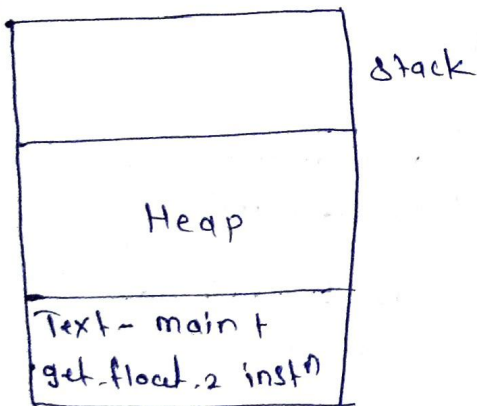 Stack
Heap
Text - main +
get_float_2 instⁿ